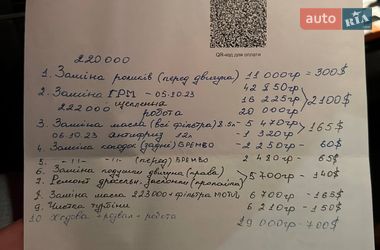 auto RIA
QR-код для оплати
220000
1. Заміна ремнів (перед двигуна) 11 000гр = 300$
42 850гр
2. Заміна ГРМ - 05.10.23 16 225гр 2100$
222 000 щеплення 20 000гр
робота
3. Заміна масла (всі фільтра) 8.5л - 5 470гр 165$
06.10.23 антифриз 12л - 1 320гр
4. Заміна колодок (задні) БРЕМБО - 2 250гр - 60$
5. -11- -11- (перед) БРЕМБО 2 420гр - 65$
6. Заміна подушки двигуна (права) 5700гр - 140$
7. Ремонт дросельн. заслонки (пропайка)
8. Заміна масла 223000 + фільтра MOTUL 6 700гр - 165$
9. Чистка турбіни 6 210гр - 150$
10. Ходова + розвал + робота 29 000гр - 700$